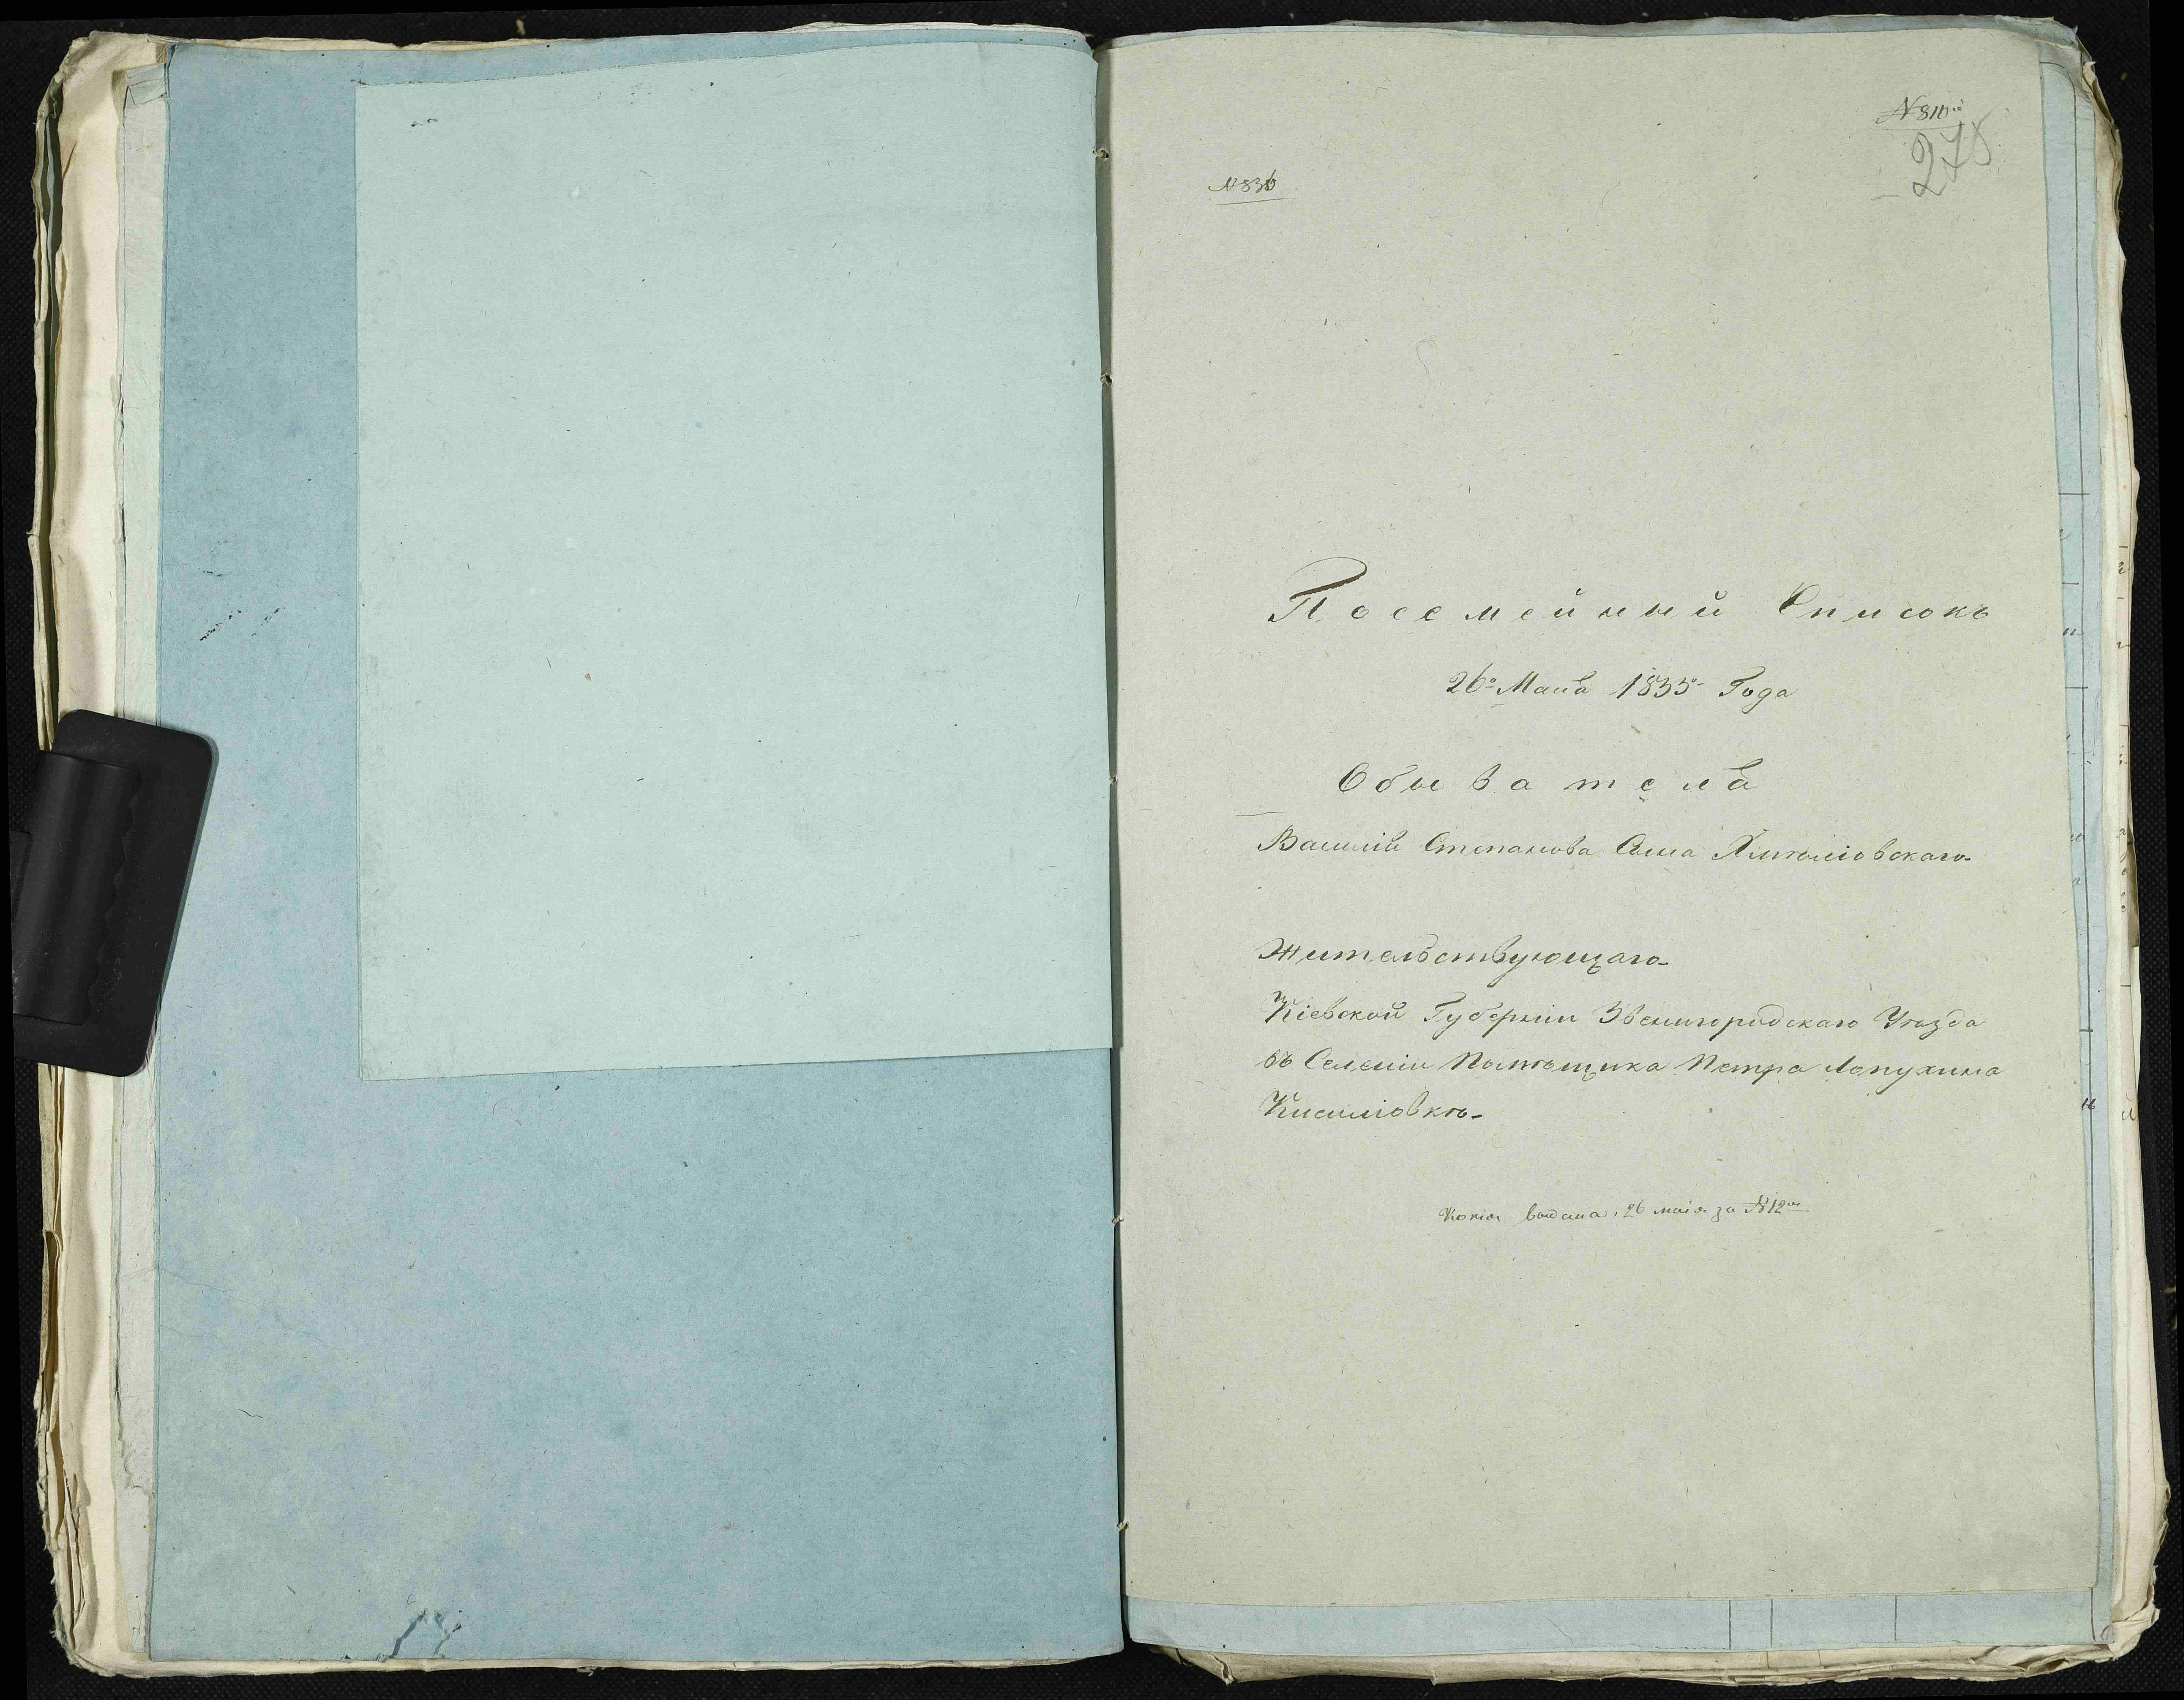 278
№ 836
Посемейный Списокъ
26го Маія 1835 Года
Обывателя
Василія Степанова Сына
Жительствующаго
Кіевской Губерніи Звенигородскаго Уѣзда
въ Селеніи Помѣщика Петра Лопухина
Кисиліовкѣ
Копія выдана 26 маія за №12